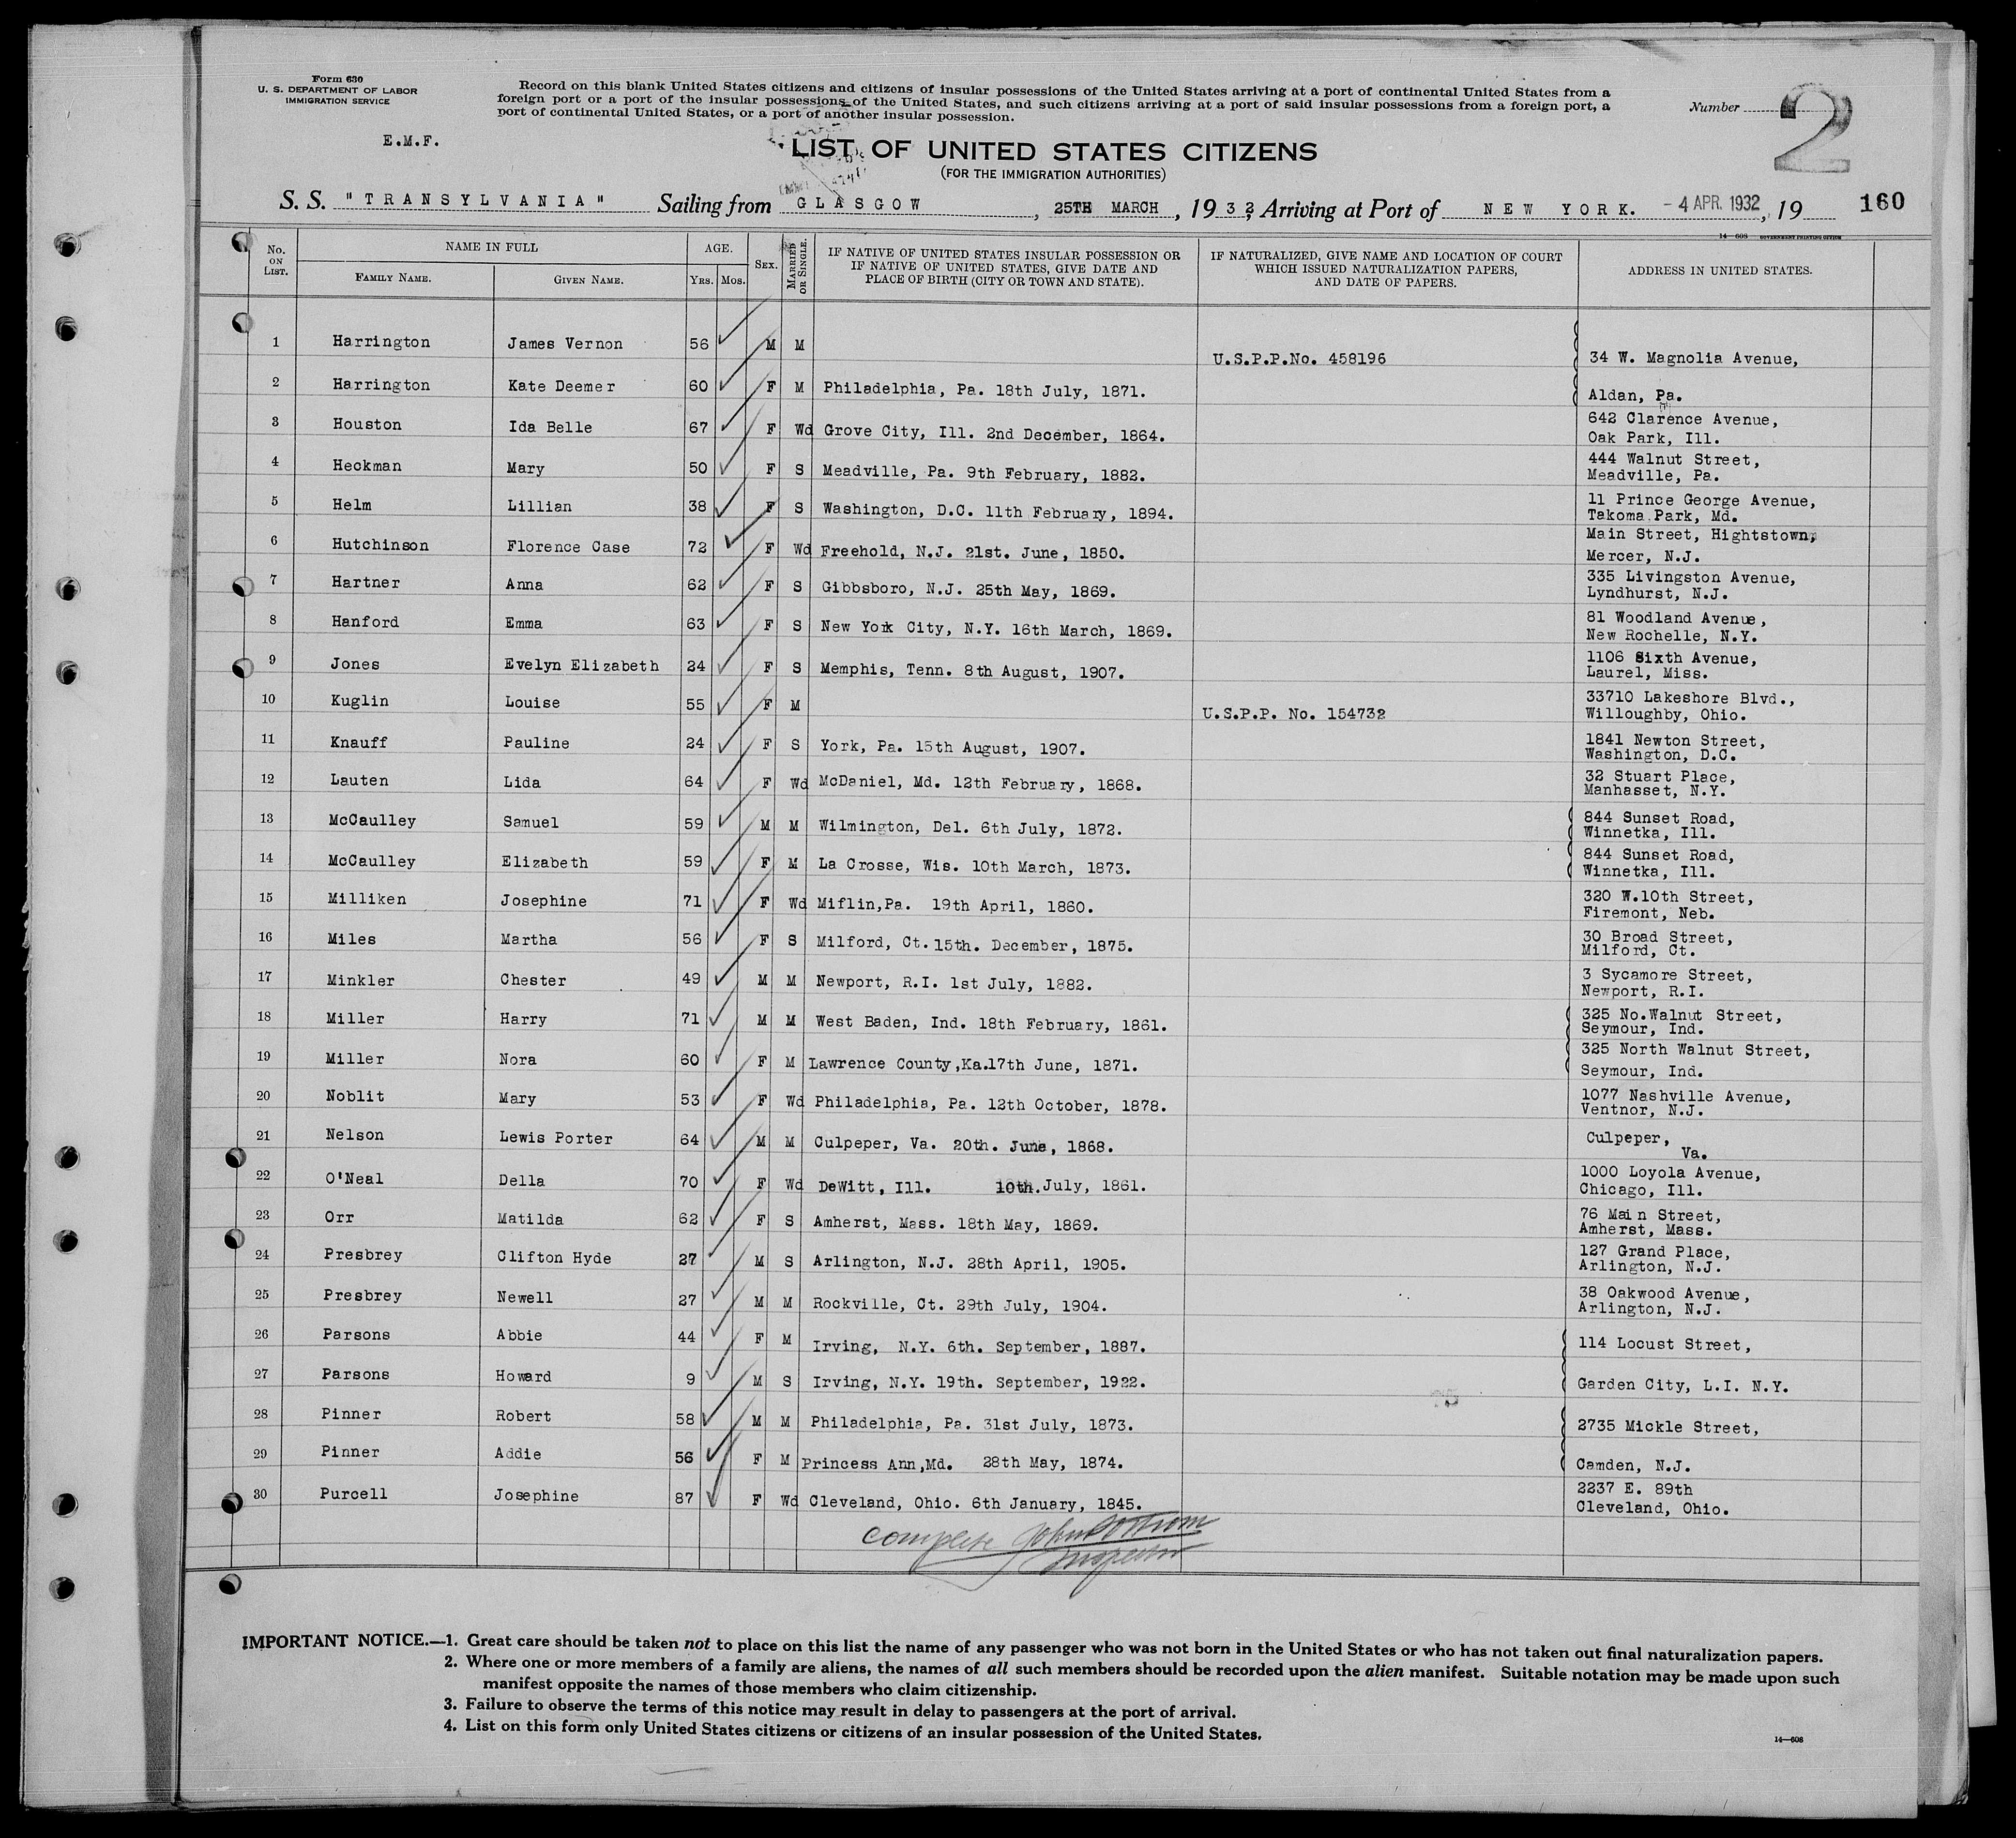 Form 630
U. S. DEPARTMENT OF LABOR
IMMIGRATION SERVICE
E.M.F.
Record on this blank United States citizens and citizens of insular possessions of the United States arriving at a port of continental United States from a
foreign port or a port of the insular possessions of the United States, and such citizens arriving at a port of said insular possessions from a foreign port, a
port of continental United States, or a port of another insular possession.
Number 2
LIST OF UNITED STATES CITIZENS
(FOR THE IMMIGRATION AUTHORITIES)
S. S. "TRANSYLVANIA" Sailing from GLASGOW, 25TH MARCH, 1932, Arriving at Port of NEW YORK. -4 APR. 1932, 19 160
14—608 GOVERNMENT PRINTING OFFICE
No. ON LIST. NAME IN FULL FAMILY NAME. GIVEN NAME. AGE. YRS. MOS. SEX. MARRIED OR SINGLE. IF NATIVE OF UNITED STATES INSULAR POSSESSION OR IF NATIVE OF UNITED STATES, GIVE DATE AND PLACE OF BIRTH (CITY OR TOWN AND STATE). IF NATURALIZED, GIVE NAME AND LOCATION OF COURT WHICH ISSUED NATURALIZATION PAPERS, AND DATE OF PAPERS. ADDRESS IN UNITED STATES.
1 Harrington James Vernon 56 M M U.S.P.P.No. 458196 34 W. Magnolia Avenue,
2 Harrington Kate Deemer 60 F M Philadelphia, Pa. 18th July, 1871. Aldan, Pa.
3 Houston Ida Belle 67 F Wd Grove City, Ill. 2nd December, 1864. 642 Clarence Avenue, Oak Park, Ill.
4 Heckman Mary 50 F S Meadville, Pa. 9th February, 1882. 444 Walnut Street, Meadville, Pa.
5 Helm Lillian 38 F S Washington, D.C. 11th February, 1894. 11 Prince George Avenue, Takoma Park, Md.
6 Hutchinson Florence Case 72 F Wd Freehold, N.J. 21st. June, 1850. Main Street, Hightstown, Mercer, N.J.
7 Hartner Anna 62 F S Gibbsboro, N.J. 25th May, 1869. 335 Livingston Avenue, Lyndhurst, N.J.
8 Hanford Emma 63 F S New York City, N.Y. 16th March, 1869. 81 Woodland Avenue, New Rochelle, N.Y.
9 Jones Evelyn Elizabeth 24 F S Memphis, Tenn. 8th August, 1907. 1106 Sixth Avenue, Laurel, Miss.
10 Kuglin Louise 55 F M U.S.P.P. No. 154732 33710 Lakeshore Blvd., Willoughby, Ohio.
11 Knauff Pauline 24 F S York, Pa. 15th August, 1907. 1841 Newton Street, Washington, D.C.
12 Lauten Lida 64 F Wd McDaniel, Md. 12th February, 1868. 32 Stuart Place, Manhasset, N.Y.
13 McCaulley Samuel 59 M M Wilmington, Del. 6th July, 1872. 844 Sunset Road, Winnetka, Ill.
14 McCaulley Elizabeth 59 F M La Crosse, Wis. 10th March, 1873. 844 Sunset Road, Winnetka, Ill.
15 Milliken Josephine 71 F Wd Miflin,Pa. 19th April, 1860. 320 W.10th Street, Firemont, Neb.
16 Miles Martha 56 F S Milford, Ct. 15th. December, 1875. 30 Broad Street, Milford, Ct.
17 Minkler Chester 49 M M Newport, R.I. 1st July, 1882. 3 Sycamore Street, Newport, R.I.
18 Miller Harry 71 M M West Baden, Ind. 18th February, 1861. 325 No.Walnut Street, Seymour, Ind.
19 Miller Nora 60 F M Lawrence County,Ka.17th June, 1871. 325 North Walnut Street, Seymour, Ind.
20 Noblit Mary 53 F Wd Philadelphia, Pa. 12th October, 1878. 1077 Nashville Avenue, Ventnor, N.J.
21 Nelson Lewis Porter 64 M M Culpeper, Va. 20th. June, 1868. Culpeper, Va.
22 O'Neal Della 70 F Wd DeWitt, Ill. 10th. July, 1861. 1000 Loyola Avenue, Chicago, Ill.
23 Orr Matilda 62 F S Amherst, Mass. 18th May, 1869. 76 Main Street, Amherst, Mass.
24 Presbrey Clifton Hyde 27 M S Arlington, N.J. 28th April, 1905. 127 Grand Place, Arlington, N.J.
25 Presbrey Newell 27 M M Rockville, Ct. 29th July, 1904. 38 Oakwood Avenue, Arlington, N.J.
26 Parsons Abbie 44 F M Irving, N.Y. 6th. September, 1887. 114 Locust Street,
27 Parsons Howard 9 M S Irving, N.Y. 19th. September, 1922. Garden City, L.I. N.Y.
28 Pinner Robert 58 M M Philadelphia, Pa. 31st July, 1873. 2735 Mickle Street,
29 Pinner Addie 56 F M Princess Ann,Md. 28th May, 1874. Camden, N.J.
30 Purcell Josephine 87 F Wd Cleveland, Ohio. 6th January, 1845. 2237 E. 89th Cleveland, Ohio.
complete John
Inspector
IMPORTANT NOTICE.—1. Great care should be taken not to place on this list the name of any passenger who was not born in the United States or who has not taken out final naturalization papers.
2. Where one or more members of a family are aliens, the names of all such members should be recorded upon the alien manifest. Suitable notation may be made upon such
manifest opposite the names of those members who claim citizenship.
3. Failure to observe the terms of this notice may result in delay to passengers at the port of arrival.
4. List on this form only United States citizens or citizens of an insular possession of the United States.
14—608